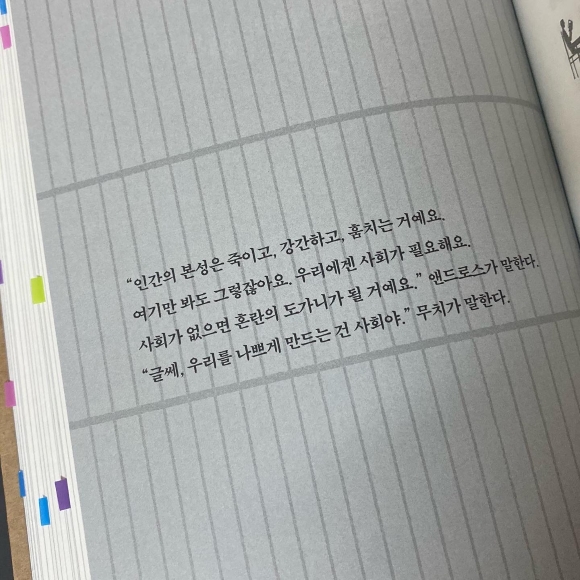 “인간의 본성은 죽이고, 강간하고, 훔치는 거예요.
여기만 봐도 그렇잖아요. 우리에겐 사회가 필요해요.
사회가 없으면 혼란의 도가니가 될 거예요.” 앤드로스가 말한다.
“글쎄, 우리를 나쁘게 만드는 건 사회야.” 무치가 말한다.